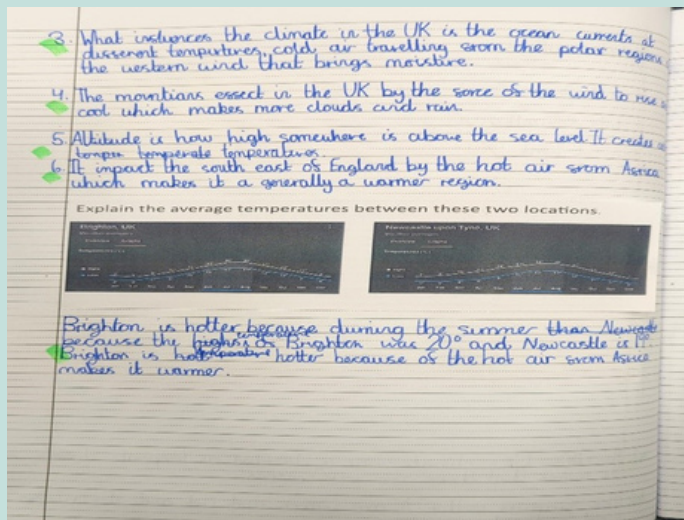 3. What influences the climate in the UK is the ocean currents at
different tempertures, cold air travelling from the polar regions
the western wind that brings moisture.
4. The mountians effect in the UK by the force of the wind to rise
cool which makes more clouds and rain.
5. Altitude is how high somewhere is above the sea level. It creates
temperate temperatures.
6. It impact the south east of England by the hot air from Africa
which makes it a generally a warmer region.
Explain the average temperatures between these two locations.
Brighton, UK
Newcastle upon Tyne, UK
Brighton is hotter because durning the summer than Newcastle
because the highs temperature of Brighton was 20° and Newcastle is
Brighton is hotter because of the hot air from Africa
makes it warmer.